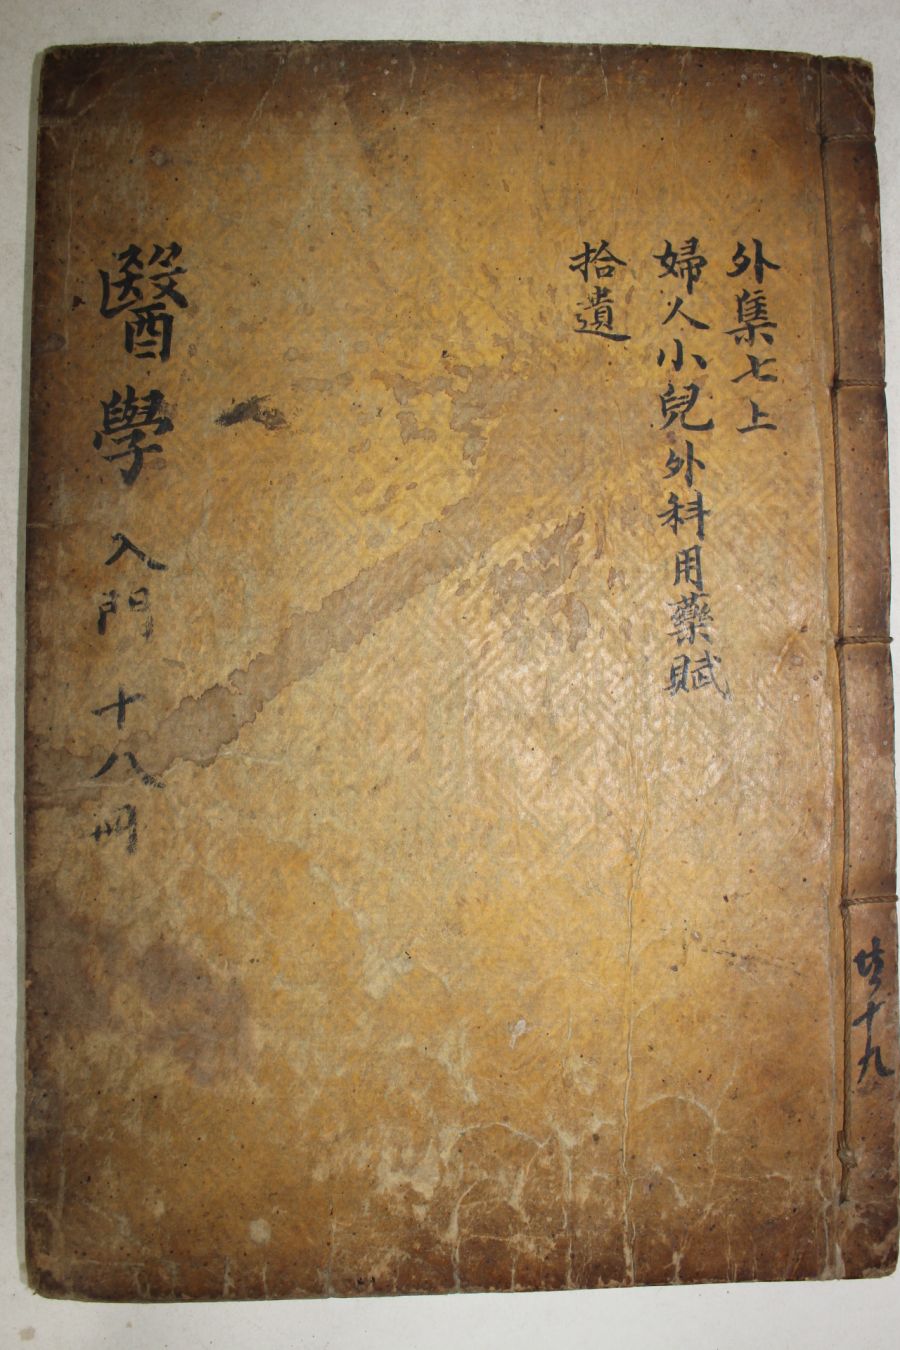 外集七上
婦人小兒外科用藥賦
拾遺
醫學 入門 十八冊
共十九